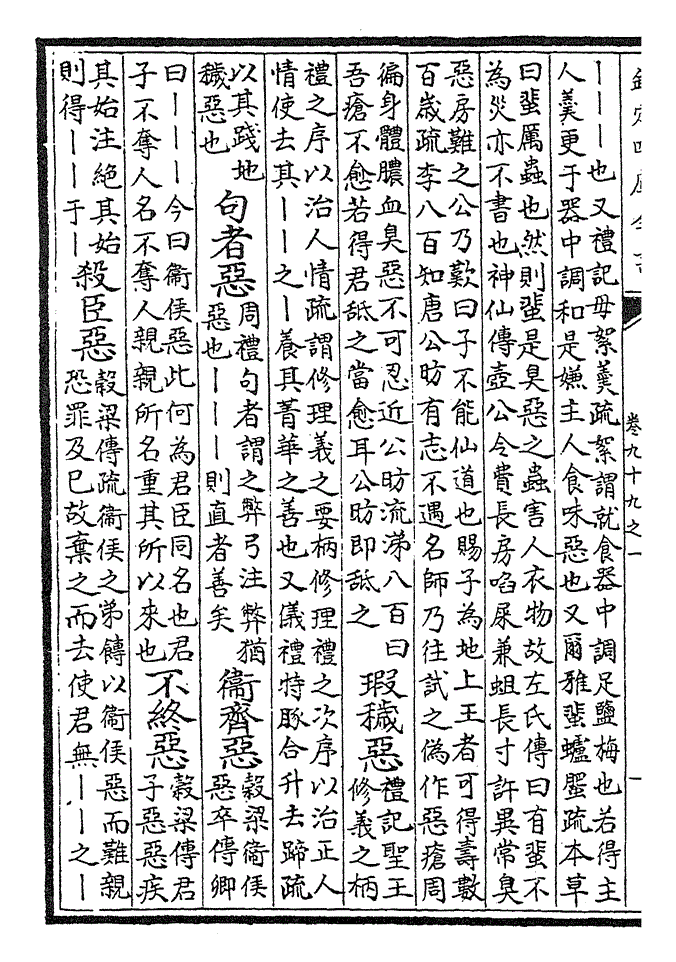 欽定四庫全書
卷九十九之一
一
｜｜｜也又禮記毋絮羹疏絮謂就食器中調足鹽梅也若得主
人羹更于器中調和是嫌主人食味惡也又爾雅蜚蠦蜰疏本草
曰蜚厲蟲也然則蜚是臭惡之蟲害人衣物故左氏傳曰有蜚不
為災亦不書也神仙傳壺公令費長房啗屎兼蛆長寸許異常臭
惡房難之公乃歎曰子不能仙道也賜子為地上王者可得壽數
百歲疏李八百知唐公昉有志不遇名師乃往試之偽作惡瘡周
徧身體膿血臭惡不可忍近公昉流涕八百曰
吾瘡不愈若得君舐之當愈耳公昉即舐之
瑕穢惡
禮記聖王
修義之柄
禮之序以治人情疏謂修理義之要柄修理禮之次序以治正人
情使去其｜｜之｜養其菁華之善也又儀禮特豚合升去蹄疏
以其踐地
穢惡也
句者惡
周禮句者謂之弊弓注弊猶
惡也｜｜｜則直者善矣
衞齊惡
穀梁衞侯
惡卒傳卿
曰｜｜｜今曰衞侯惡此何為君臣同名也君
子不奪人名不奪人親親所名重其所以來也
不終惡
穀梁傳君
子惡惡疾
其始注絶其始
則得｜｜于｜
殺臣惡
穀梁傳疏衞侯之弟鱄以衞侯惡而難親
恐罪及已故棄之而去使君無｜｜之｜